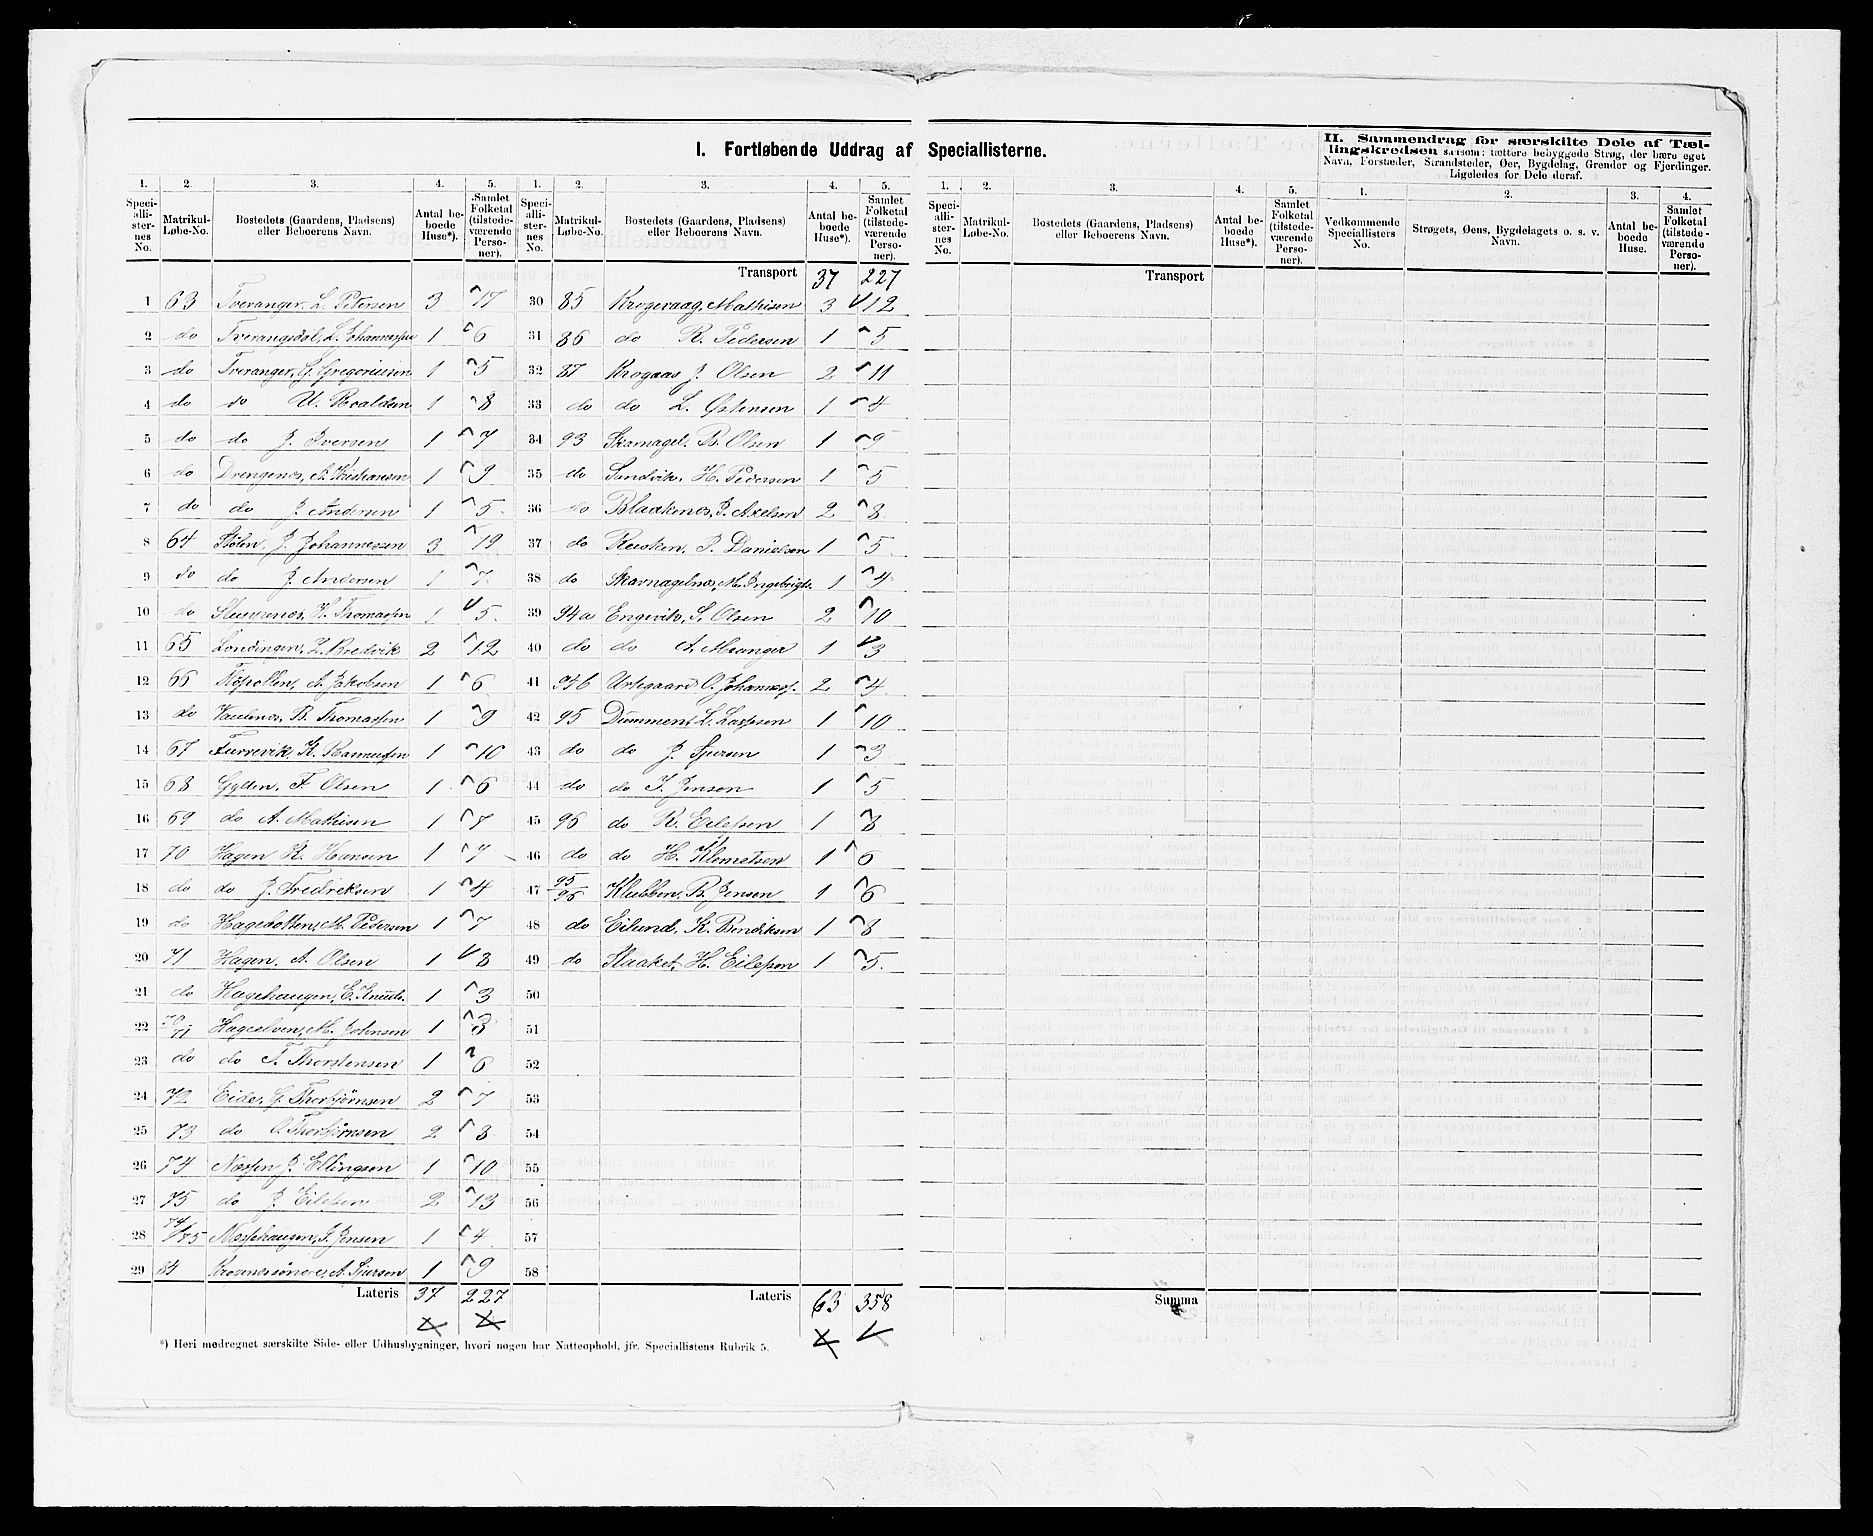 I. Fortløbende Uddrag af Speciallisterne.
II. Sammendrag for særskilte Dele af Tæl-
lingskredsen saasom: tættere bebyggede Strøg, der bære eget
Navn, Forstæder, Strandsteder, Øer, Bygdelag, Grender og Fjerdinger.
Ligeledes for Dele deraf.
1. 2. 3. 4. 5. 1. 2. 3. 4. 5. 1. 2. 3. 4. 5. 1. 2. 3. 4.
Speciallisternes No. Matrikul-Løbe-No. Bostedets (Gaardens, Pladsens) eller Beboerens Navn. Antal beboede Huse*). Samlet Folketal (tilstedeværende Personer).
Speciallisternes No. Matrikul-Løbe-No. Bostedets (Gaardens, Pladsens) eller Beboerens Navn. Antal beboede Huse*). Samlet Folketal (tilstedeværende Personer).
Speciallisternes No. Matrikul-Løbe-No. Bostedets (Gaardens, Pladsens) eller Beboerens Navn. Antal beboede Huse*). Samlet Folketal (tilstedeværende Personer).
Vedkommende Speciallisters No. Strøgets, Øens, Bygdelagets o. s. v. Navn. Antal beboede Huse. Samlet Folketal (tilstedeværende Personer).
1 63 Tveranger, L. Petersen 3 17
2 do Tverangsdal, L. Johannessen 1 6
3 do Tveranger, G. Gregoriussen 1 5
4 do do U. Roaldsen 1 8
5 do do J. Iversen 1 7
6 do Drengenes, A. Kristiansen 1 9
7 do do J. Andersen 1 5
8 64 Stølen, J. Johannessen 3 19
9 do do J. Andersen 1 7
10 do H. Thomassen 1 5
11 65 Londingen, Z. Bredvik 2 12
12 66 A. Jakobsen 1 6
13 do B. Thomassen 1 9
14 67 Furrevik, K. Rasmussen 1 10
15 68 Gylten, F. Olsen 1 6
16 69 do A. Mathisen 1 7
17 70 Hagen K. Hansen 1 7
18 do do J. Fredriksen 1 4
19 do M. Pedersen 1 7
20 71 Hagen, A. Olsen 1 8
21 do Hagehaugen, E. Knuds. 1 3
22 70/71 Hageelven, M. Johnsen 1 8
23 do do T. Thorstensen 1 6
24 72 Eide, G. Thorbjørnsen 2 7
25 73 do O. Thorbjørnsen 2 8
26 74 Nessen J. Ellingsen 1 10
27 75 do J. Eilefsen 2 13
28 74/75 Nessehaugen, S. Jensen 1 4
29 84 A. Sjursen 1 9
Lateris 37 227
Transport 37 227
30 85 Krogevaag, Mathisen 3 12
31 86 do R. Pedersen 1 5
32 87 Krogaas J. Olsen 2 11
33 do do L. Østensen 1 4
34 93 Skarnagel, B. Olsen 1 9
35 do Sandvik, H. Pedersen 1 5
36 do Blaakenes, P. Axelsen 2 8
37 do Reisken, P. Danielsen 1 5
38 do Skavnagelnes, M. Ingebrigts. 1 4
39 94a Engevik, S. Olsen 2 10
40 do do A. Manger 1 3
41 94b Urhgaard O. Johannes. 2 4
42 95 Dummen, L. Larssen 1 10
43 do do J. Sjursen 1 3
44 do do I. Jensen 1 5
45 96 do R. Eilefsen 1 8
46 do do H. Klemetsen 1 6
47 95/96 Klubben, B. Jensen 1 6
48 do Eilund, K. Bendiksen 1 8
49 do Slaaket, H. Eilefsen 1 5
50
51
52
53
54
55
56
57
58
Lateris 63 358
Transport
Summa
*) Heri medregnet særskilte Side- eller Udhusbygninger, hvori nogen har Natteophold, jfr. Speciallistens Rubrik 5.